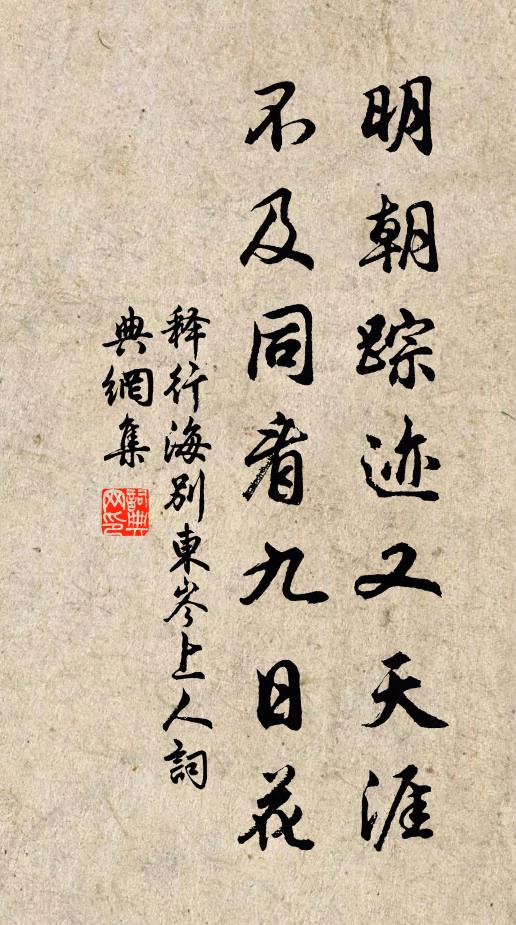 明朝踪迹又天涯
不及同看九日花
释行海别東岑上人詞
典網集
詞典网印